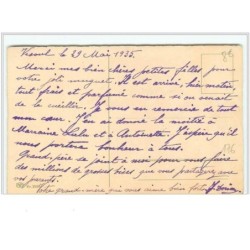 Vesoul le 29 Mai 1935.
Merci mes bien chères petites filles pour
votre joli muguet. Il est arrivé, hier matin,
tout frais et parfumé comme si on venait
de le cueillir. Je vous en remercie de tout
mon cœur. J'en ai donné la moitié à
Marraine Lulu et à Antoinette. J'espère qu'il
nous portera bonheur à tous.
Grand-père se joint à moi pour vous faire
des millions de grosses bises que vous partagerez avec
vos parents.
Votre grand-mère qui vous aime bien fort